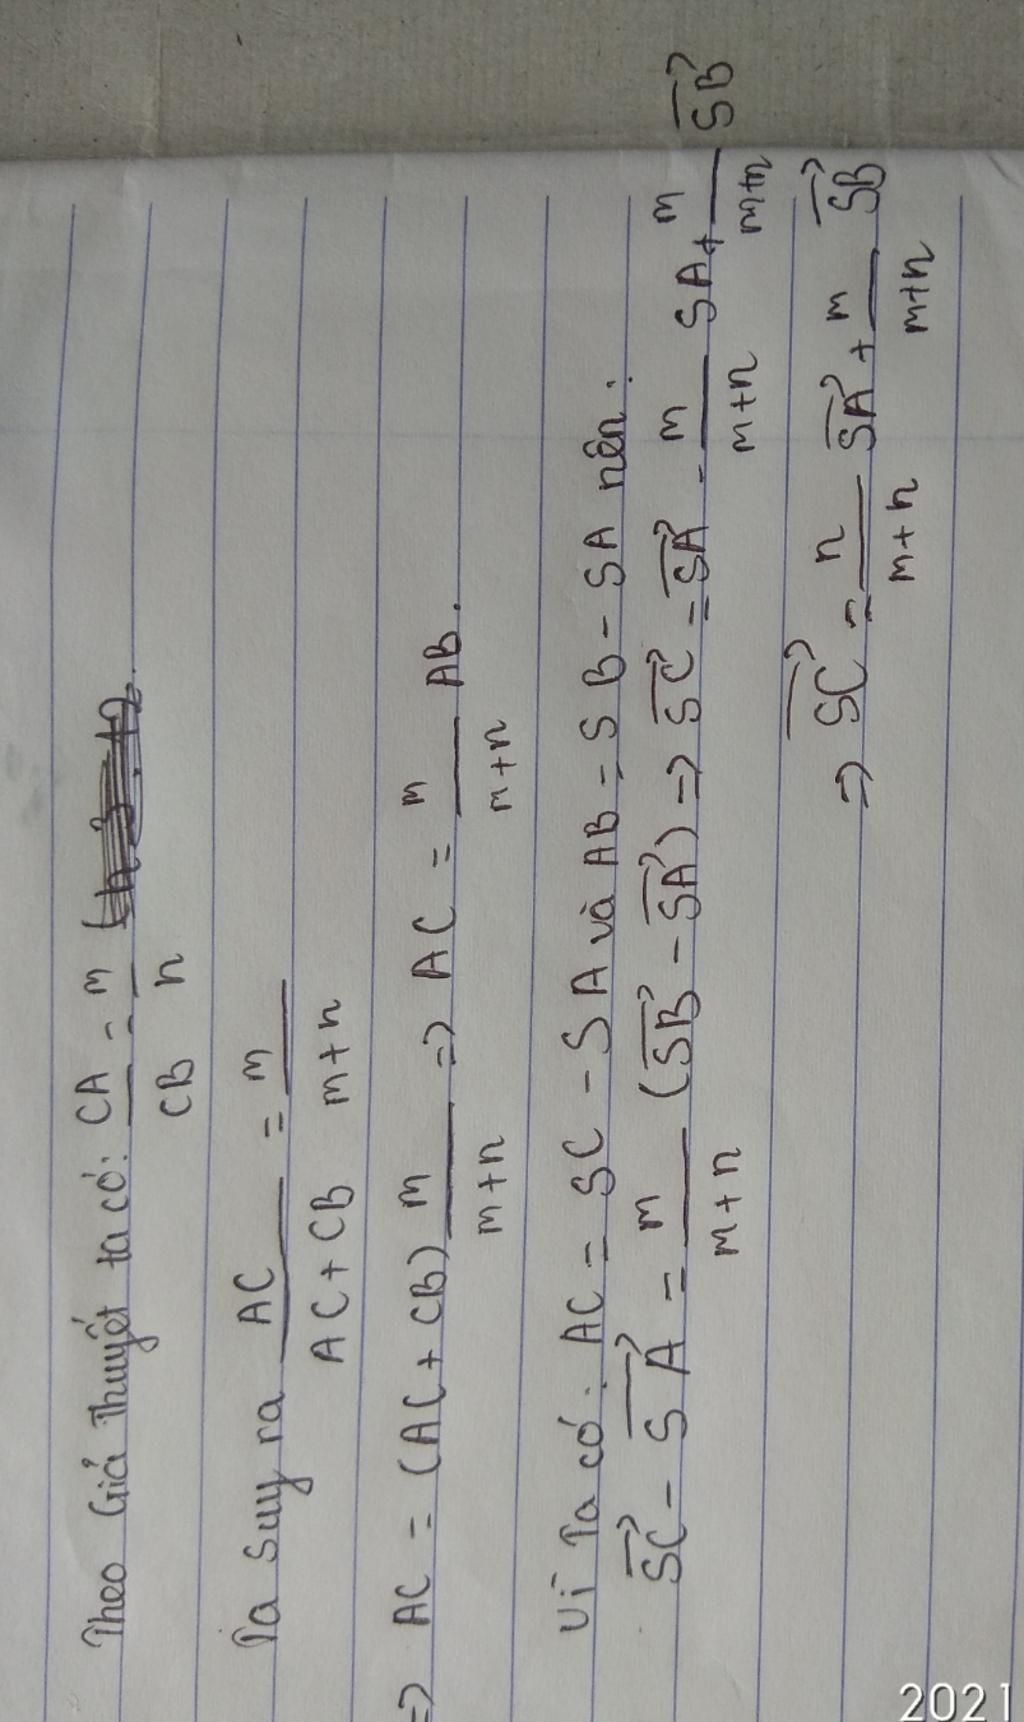 Theo Giả Thuyết ta có: CA/CB = m/n
Ta suy ra AC/(AC + CB) = m/(m+n)
=> AC = (AC + CB) m/(m+n) => AC = m/(m+n) AB.
Vì Ta có: AC = SC - SA và AB = SB - SA nên:
\vec{SC} - \vec{SA} = m/(m+n) (\vec{SB} - \vec{SA}) => \vec{SC} = \vec{SA} - m/(m+n) SA + m/(m+n) \vec{SB}
=> \vec{SC} = n/(m+n) \vec{SA} + m/(m+n) \vec{SB}
2021